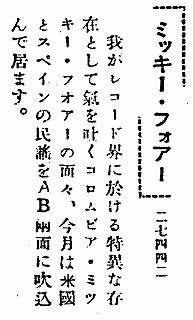 ミッキー・フォアー 二七四四二
我がレコード界に於ける特異な存
在として氣を吐くコロムビア・ミツ
キー・フオアーの面々、今月は米國
とスペインの民謠をAB兩面に吹込
んで居ます。